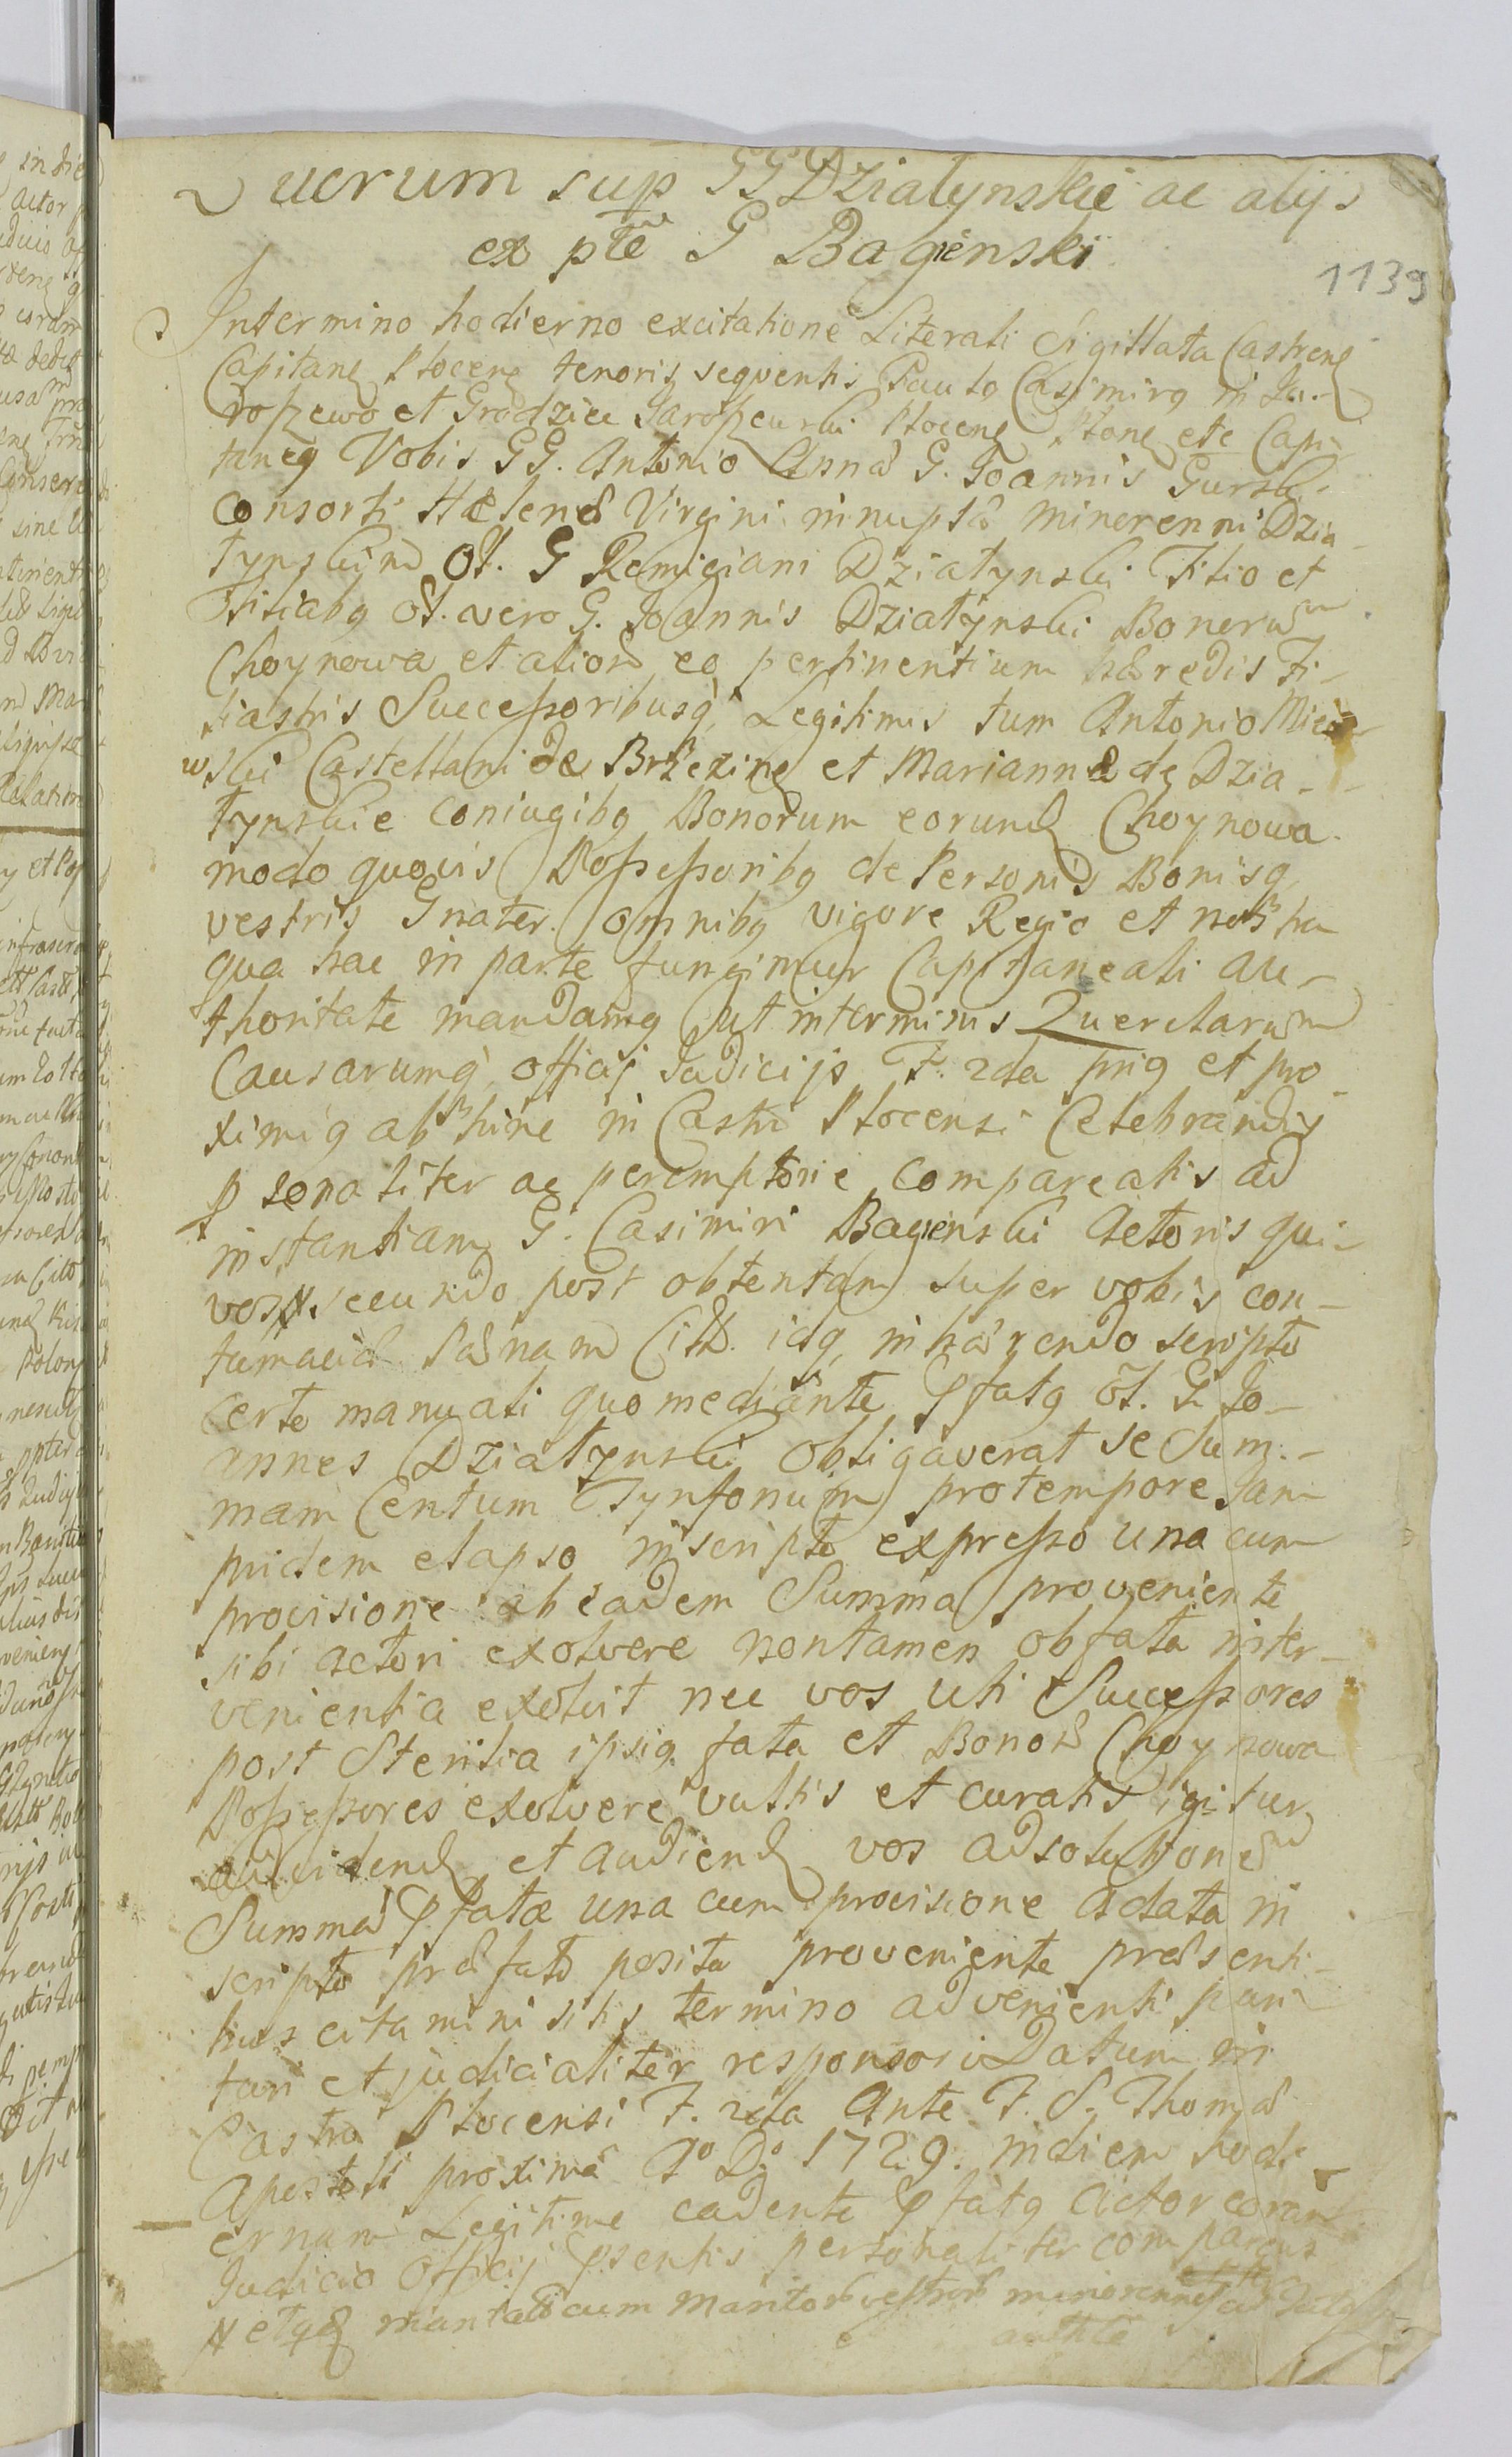 Lucrum sup GG Działynskie ac alijs
ex pte G Bagienski
1139
In termino hodierno ex citatione Literali Sigillata Castrens
Capitane Plocens tenoris sequentis Paulus Casimirus in Ja-
ropzewo et Grodziec Jaropzewski Plocens Ptone etc Capi-
taneg Vobis GG. Antonio Anna G. Joannis Gurski
Consorti Helenæ Virgini innupta minorenni Dzia-
lynskim Ol. G Remigiani Działynski Filio et
Filiabg Ol. vero G. Joannis Działynski Bonorum
Choynowa et alior eo pertinentium hæredis Fi-
liastris Successoribusq Legitimis tum Antonio Mier
wski Castellani de Brzezine et Marianna de Dzia-
łynskie Coniugibg Bonorum eorund Choynowa
modo quovis Possessoribg de Personis Bonisq
vestris Gnater. omnibg vigore Regio et nostra
qua hac in parte fungimur Capitaneali au-
thoritate mandamg ut in terminis Querelarum
Causarumq officij Judicijs F. 2da prig et pro-
ximig abhinc in Castro Plocensi Celebrandis
psonaliter ac peremptorie compareatis ad
instantiam G. Casimiri Bagienski Actoris qui
vos N. secundo post obtentam super vobis con-
tumaciæ Pænam Citt. idq inhærendo scripto
certo manuali quo mediante pfatg ol. G. Jo-
annes Działynski obligaverat se Sum-
mam Centum Tynfonum pro tempore Jam
pridem elapso in scripto expresso una cum
provisione ab eadem Summa proveniente
sibi actori exolvere non tamen ob fata inter-
venientia exolvit nec vos uti Successores
post Sterilia ipsig fata et Bonor Choynowa
Possessores exolvere vultis et curatis igitur
ad vidend et audiend vos ad solutionem
Summæ pfatæ una cum provisione a data in
scripto præfato posita proveniente præsenti-
bus citamini sitis termino advenienti pari-
turi et judicialiter responsori Datum in
Castro Plocensi F. 2da Ante F. S. Thomæ
Apostoli proxima Ao Do 1729. in diem hodi-
ernam Legitime cadente pfatg Actor coram
Judicio Officij psentis personaliter comparens
N etqz mantæ cum Maritor vestror minorennes ad
authte